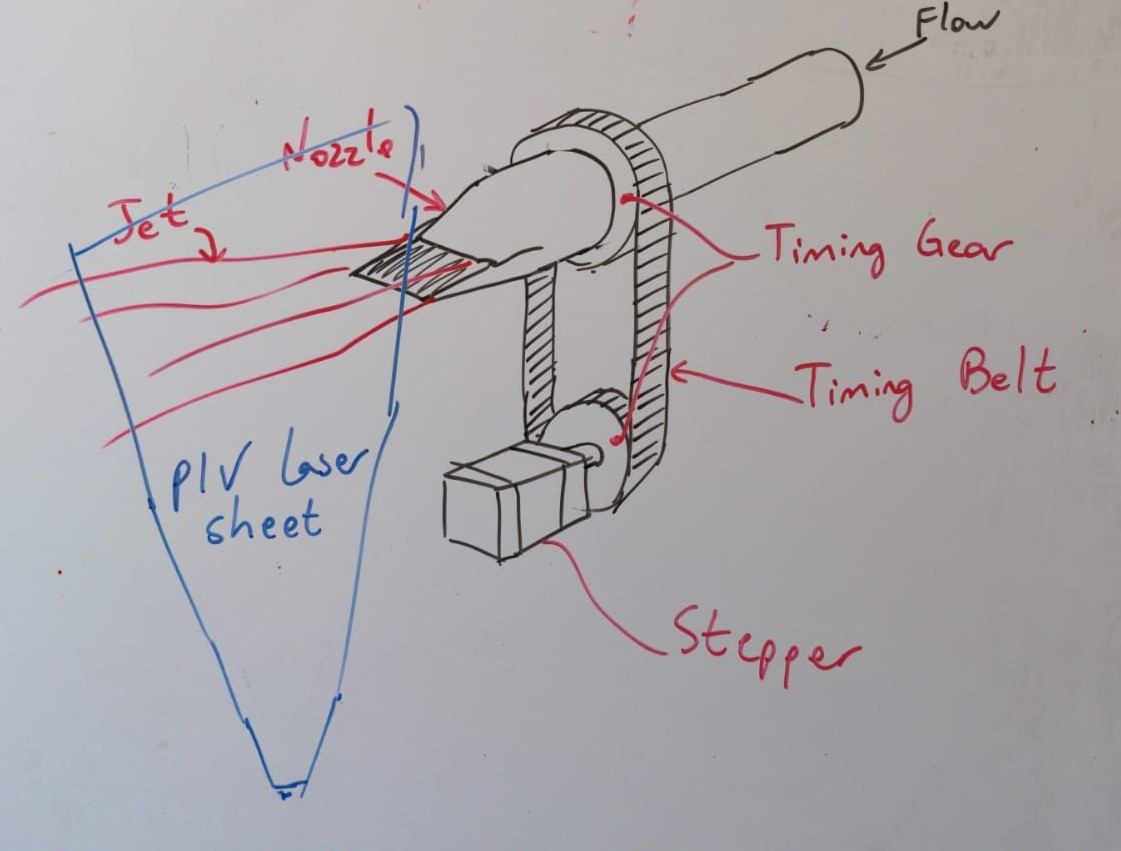 Flow
Nozzle
Jet
Timing Gear
Timing Belt
PIV laser
sheet
Stepper